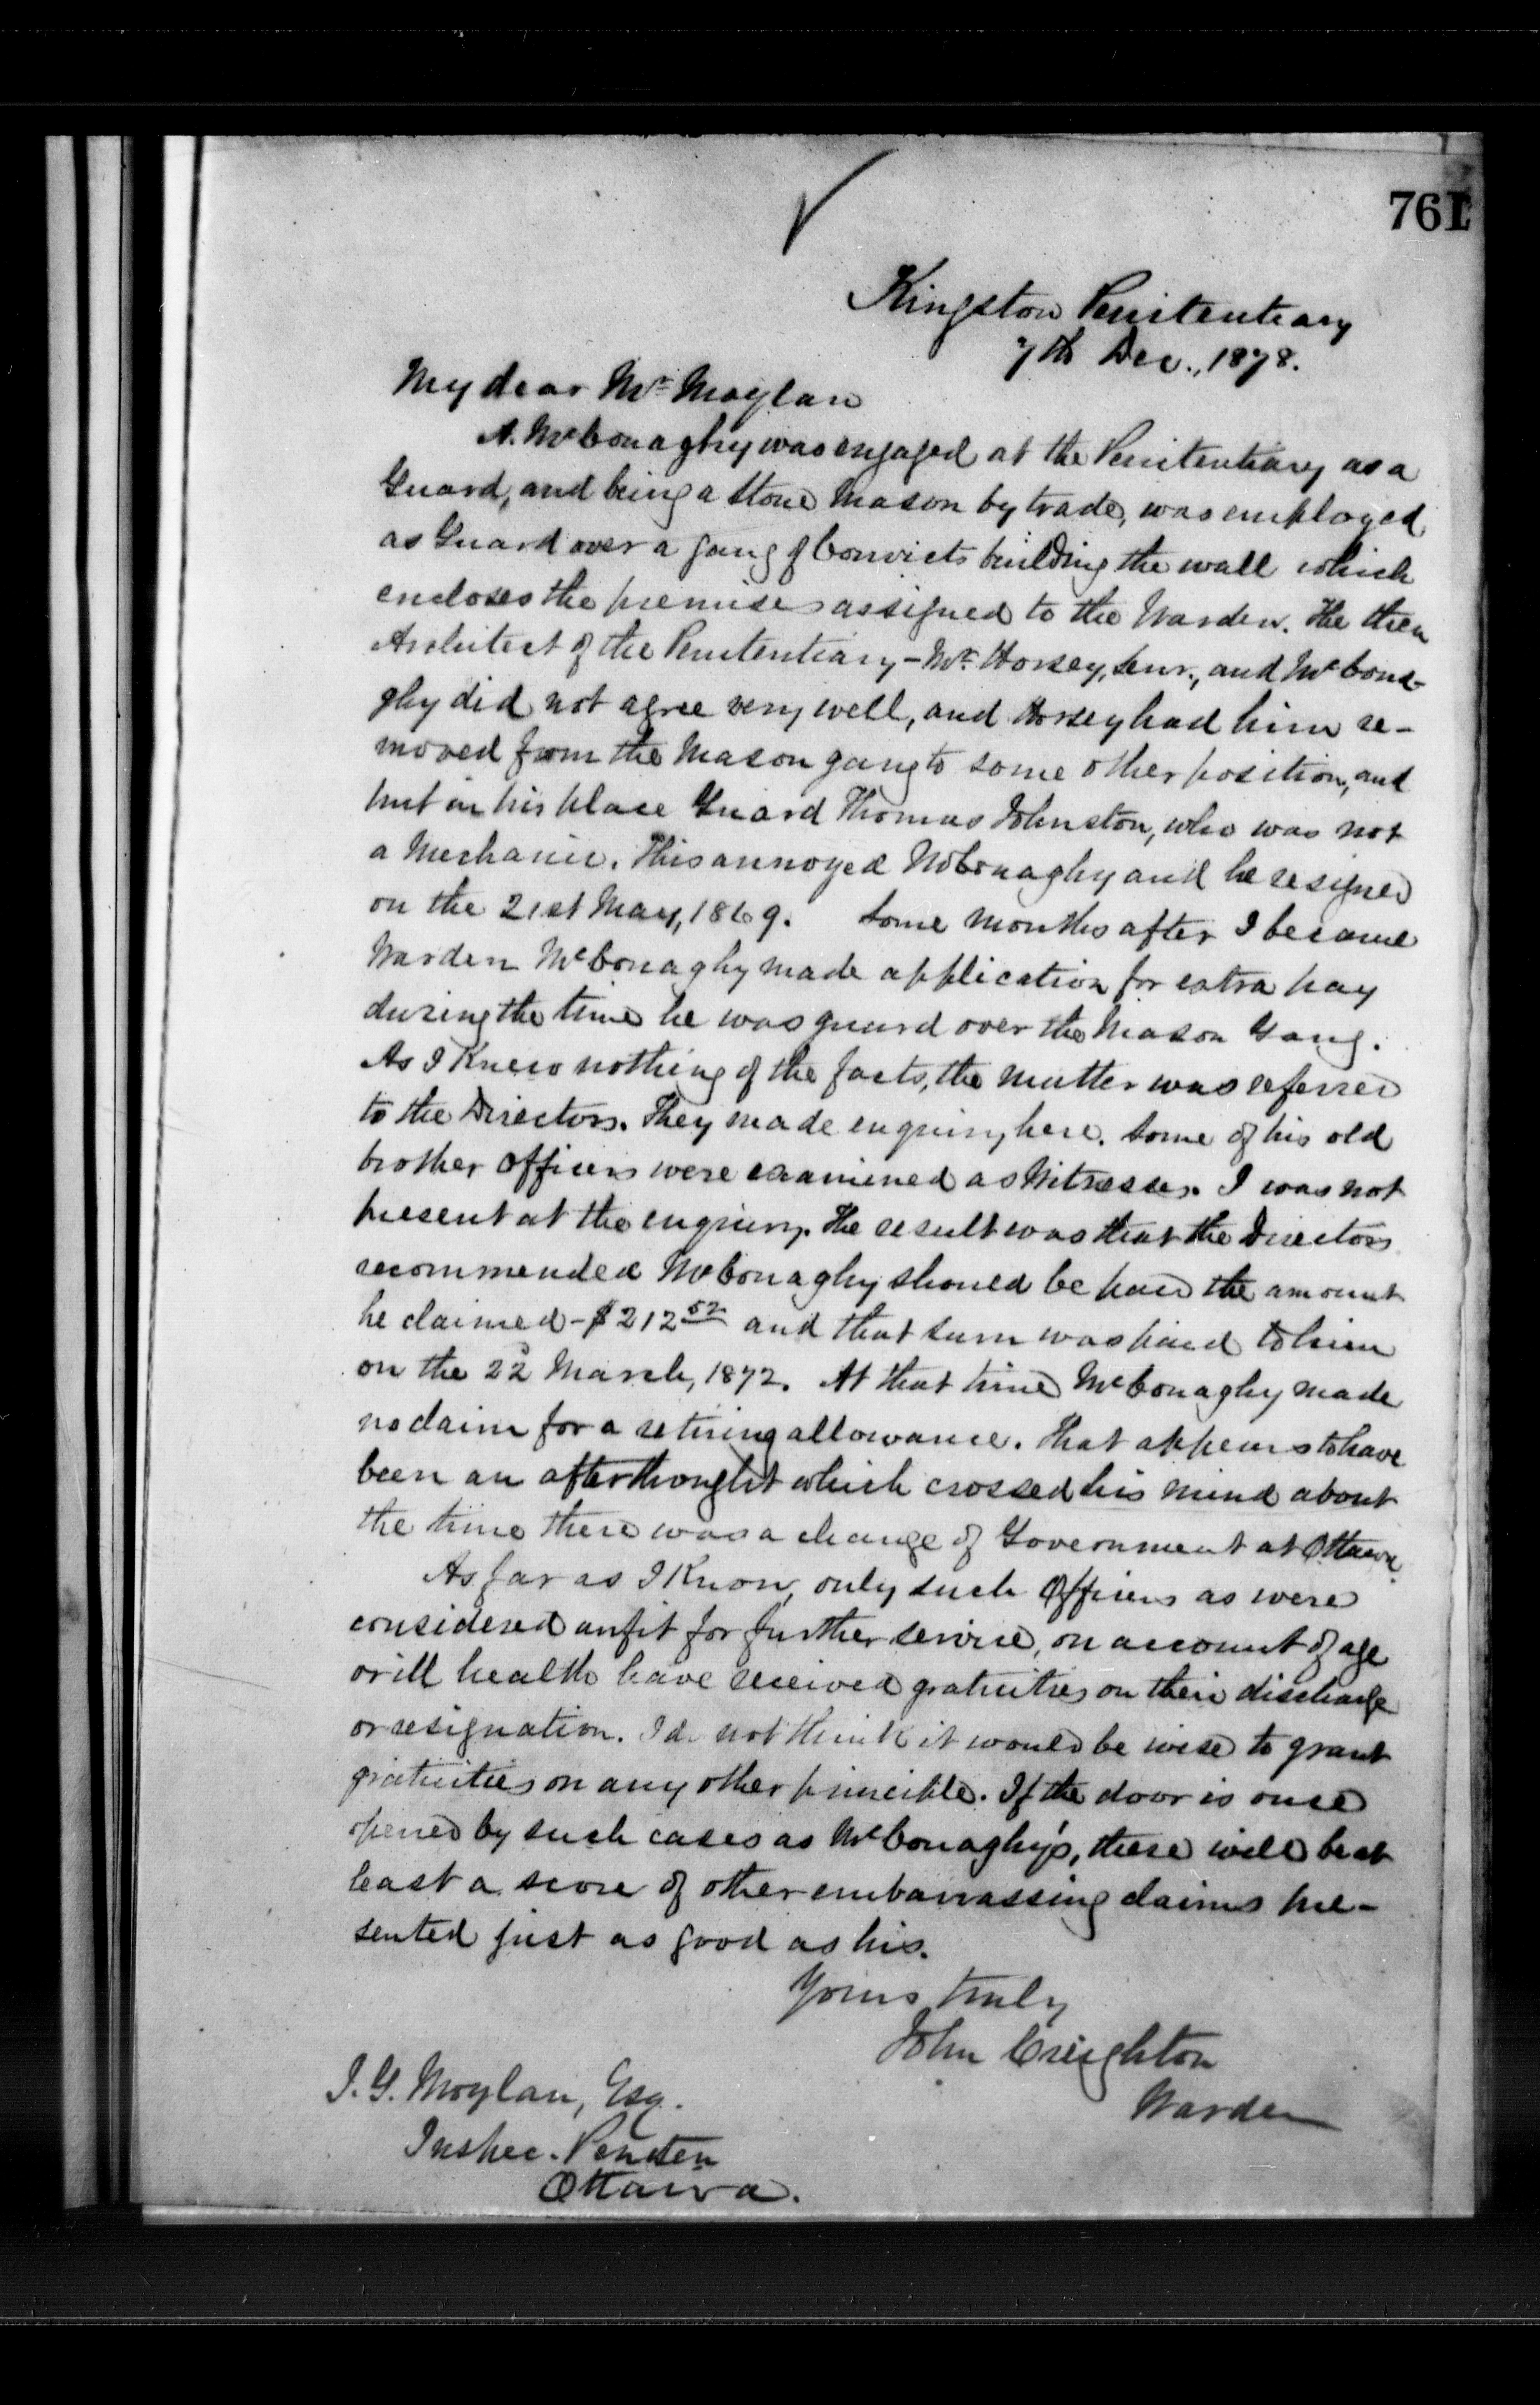 761
Kingston Penitentiary
7th Dec., 1878.
My dear Mr Moylan
A. McConaghy was engaged at the Penitentiary as a
Guard, and being a Stone Mason by trade, was employed
as Guard over a gang of Convicts building the wall which
encloses the premises assigned to the Warden. The then
Architect of the Penitentiary - Mr. Horsey, Senr., and McCona-
ghy did not agree very well, and Horsey had him re-
moved from the Mason gang to some other position, and
put in his place Guard Thomas Johnston, who was not
a Mechanic. This annoyed McConaghy and he resigned
on the 21st May, 1869. Some months after I became
Warden McConaghy made application for extra pay
during the time he was guard over the Mason Gang.
As I Knew nothing of the facts, the matter was referred
to the Directors. They made enquiry here. Some of his old
brother Officers were examined as Witnesses. I was not
present at the enquiry. The result was that the Directors
recommended McConaghy should be paid the amount
he claimed - $212 52 and that sum was paid to him
on the 22d March, 1872. At that time McConaghy made
no claim for a retiring allowance. That appears to have
been an afterthought which crossed his mind about
the time there was a change of Government at Ottawa.
As far as I Know, only such Officers as were
considered unfit for further service, on account of age
or ill health have received gratuities on their discharge
or resignation. I do not think it would be wise to grant
gratuities on any other principle. If the door is once
opened by such cases as McConaghy's, there will be at
least a score of other embarrassing claims pre-
sented just as good as his.
Yours truly
John Creighton
Warden
J. G. Moylan, Esq.
Inspec. Peniten
Ottawa.